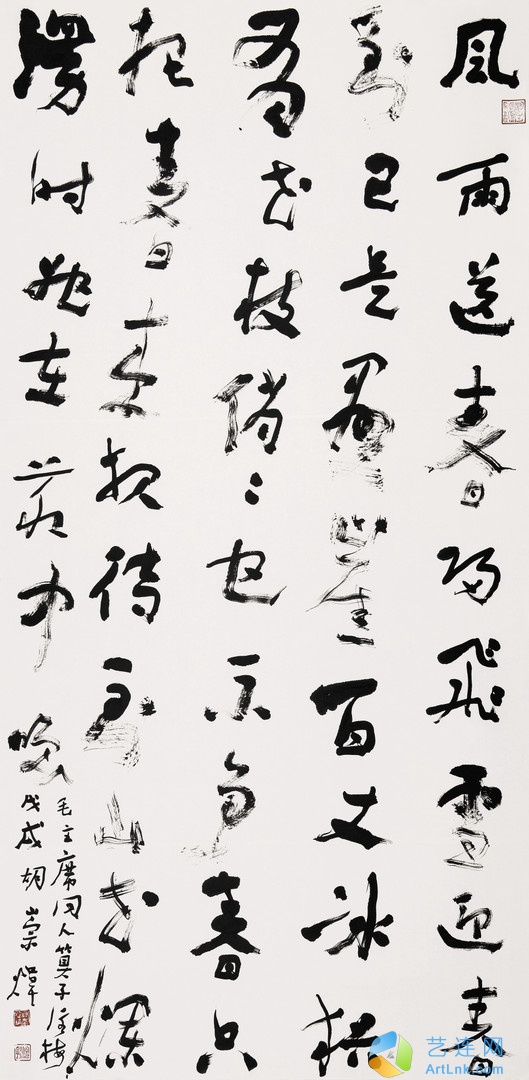 風雨送春归飛雪迎春
到已是懸崖百丈冰猶
有花枝俏〻也不争春只
把春来报待到山花爛
漫时她在丛中笑
毛主席词卜算子咏梅
戊戌胡崇煒
艺连网
ArtLnk.com